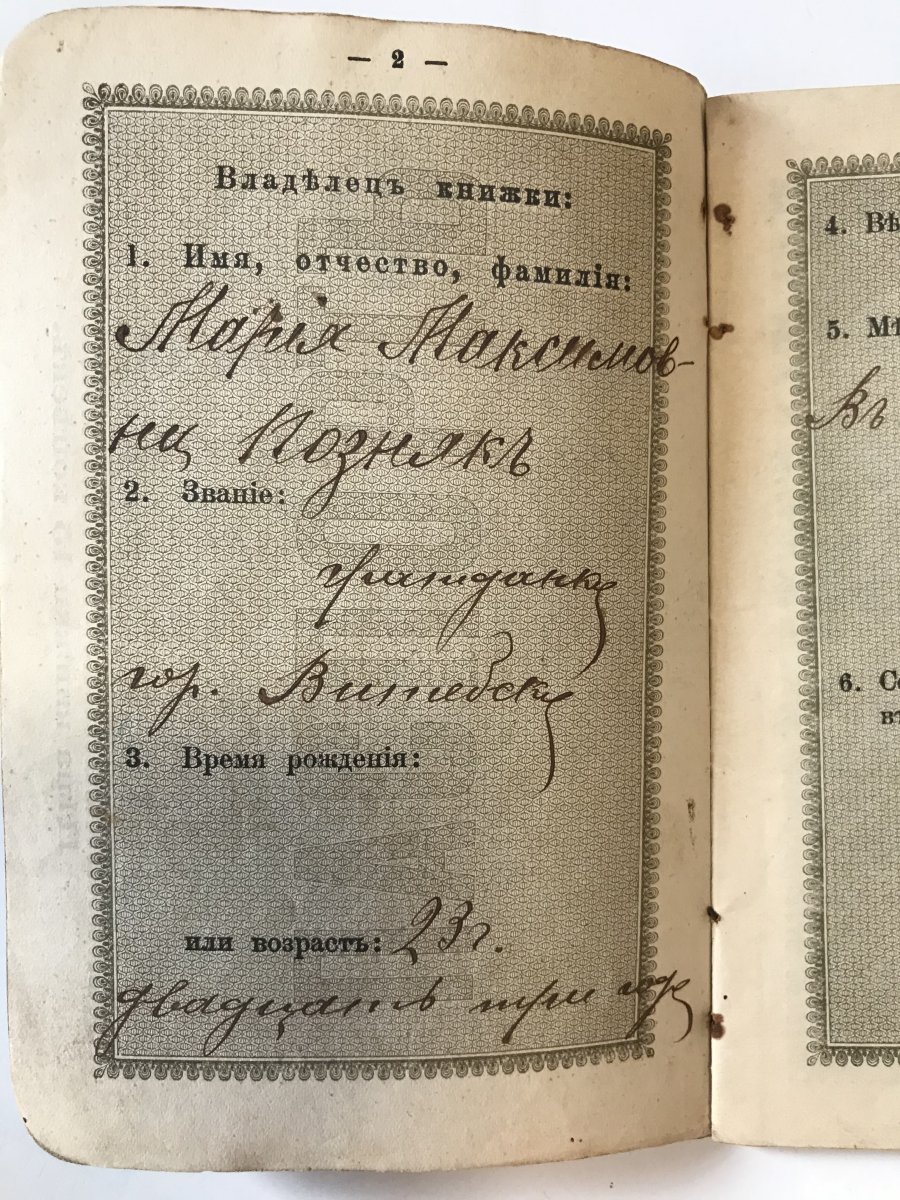 — 2 —
Владѣлецъ книжки:
1. Имя, отчество, фамилія:
Марія Максимов-
на Познякъ
2. Званіе:
гражданка
гор. Витебска
3. Время рожденія:
или возрастъ: 23 г.
двадцать три года
4. Вѣ
5. Мѣ
Въ
6. Со
вт